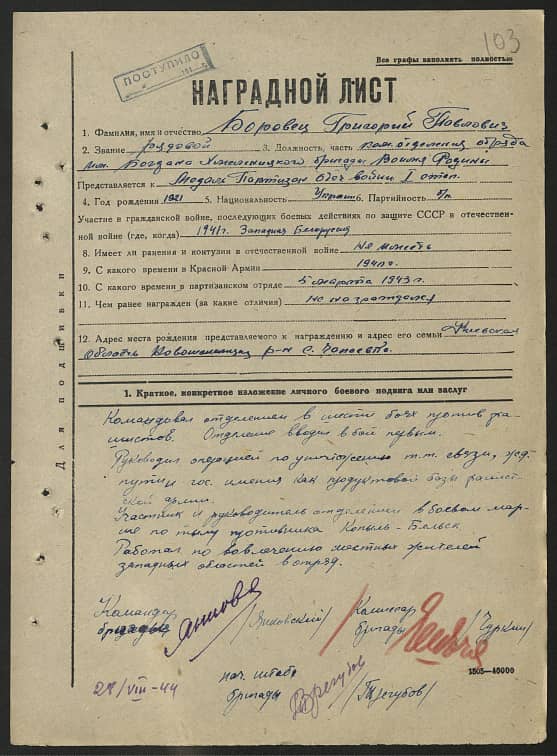 103
Все графы заполнять полностью
ПОСТУПИЛО
НАГРАДНОЙ ЛИСТ
1. Фамилия, имя и отчество Боровец Григорий Павлович
2. Звание рядовой 3. Должность, часть ком. отделения отряда
им. Богдана Хмельницкого бригады Вомля Родину
Представляется к Медаль Партизан отеч войны I степ.
4. Год рождения 1921 5. Национальность Украин 6. Партийность б/п
Участие в гражданской войне, последующих боевых действиях по защите СССР и отечествен-
ной войне (где, когда) 1941г. Западная Белоруссия
8. Имеет ли ранения и контузии в отечественной войне Не имеет
9. С какого времени в Красной Армии 1941г.
10. С какого времени в партизанском отряде 5 марта 1943 г.
11. Чем ранее награжден (за какие отличия) не награждался
12. Адрес места рождения представляемого к награждению и адрес его семьи Киевская
область р-н с. Чапаевка.
Для подшивки
1. Краткое, конкретное изложение личного боевого подвига или заслуг
Командовал отделением в шести боях против фа-
шистов. Отделение вводил в бой первым.
Руководил операцией по уничтожению т.т. связи, жд.
пути и гос. имения как продуктовой базы фашист-
ской армии.
Участник и руководитель отделения в боевом мар-
ше по тылу противника Копыль-Бельск
Работал по вовлечению местных жителей
западных областей в отряд.
Командир
бригады /Янковский/
Комиссар
бригады /Чуркин/
1505—10000
27/VIII-44
нач. штаба
бригады /Трегубов/